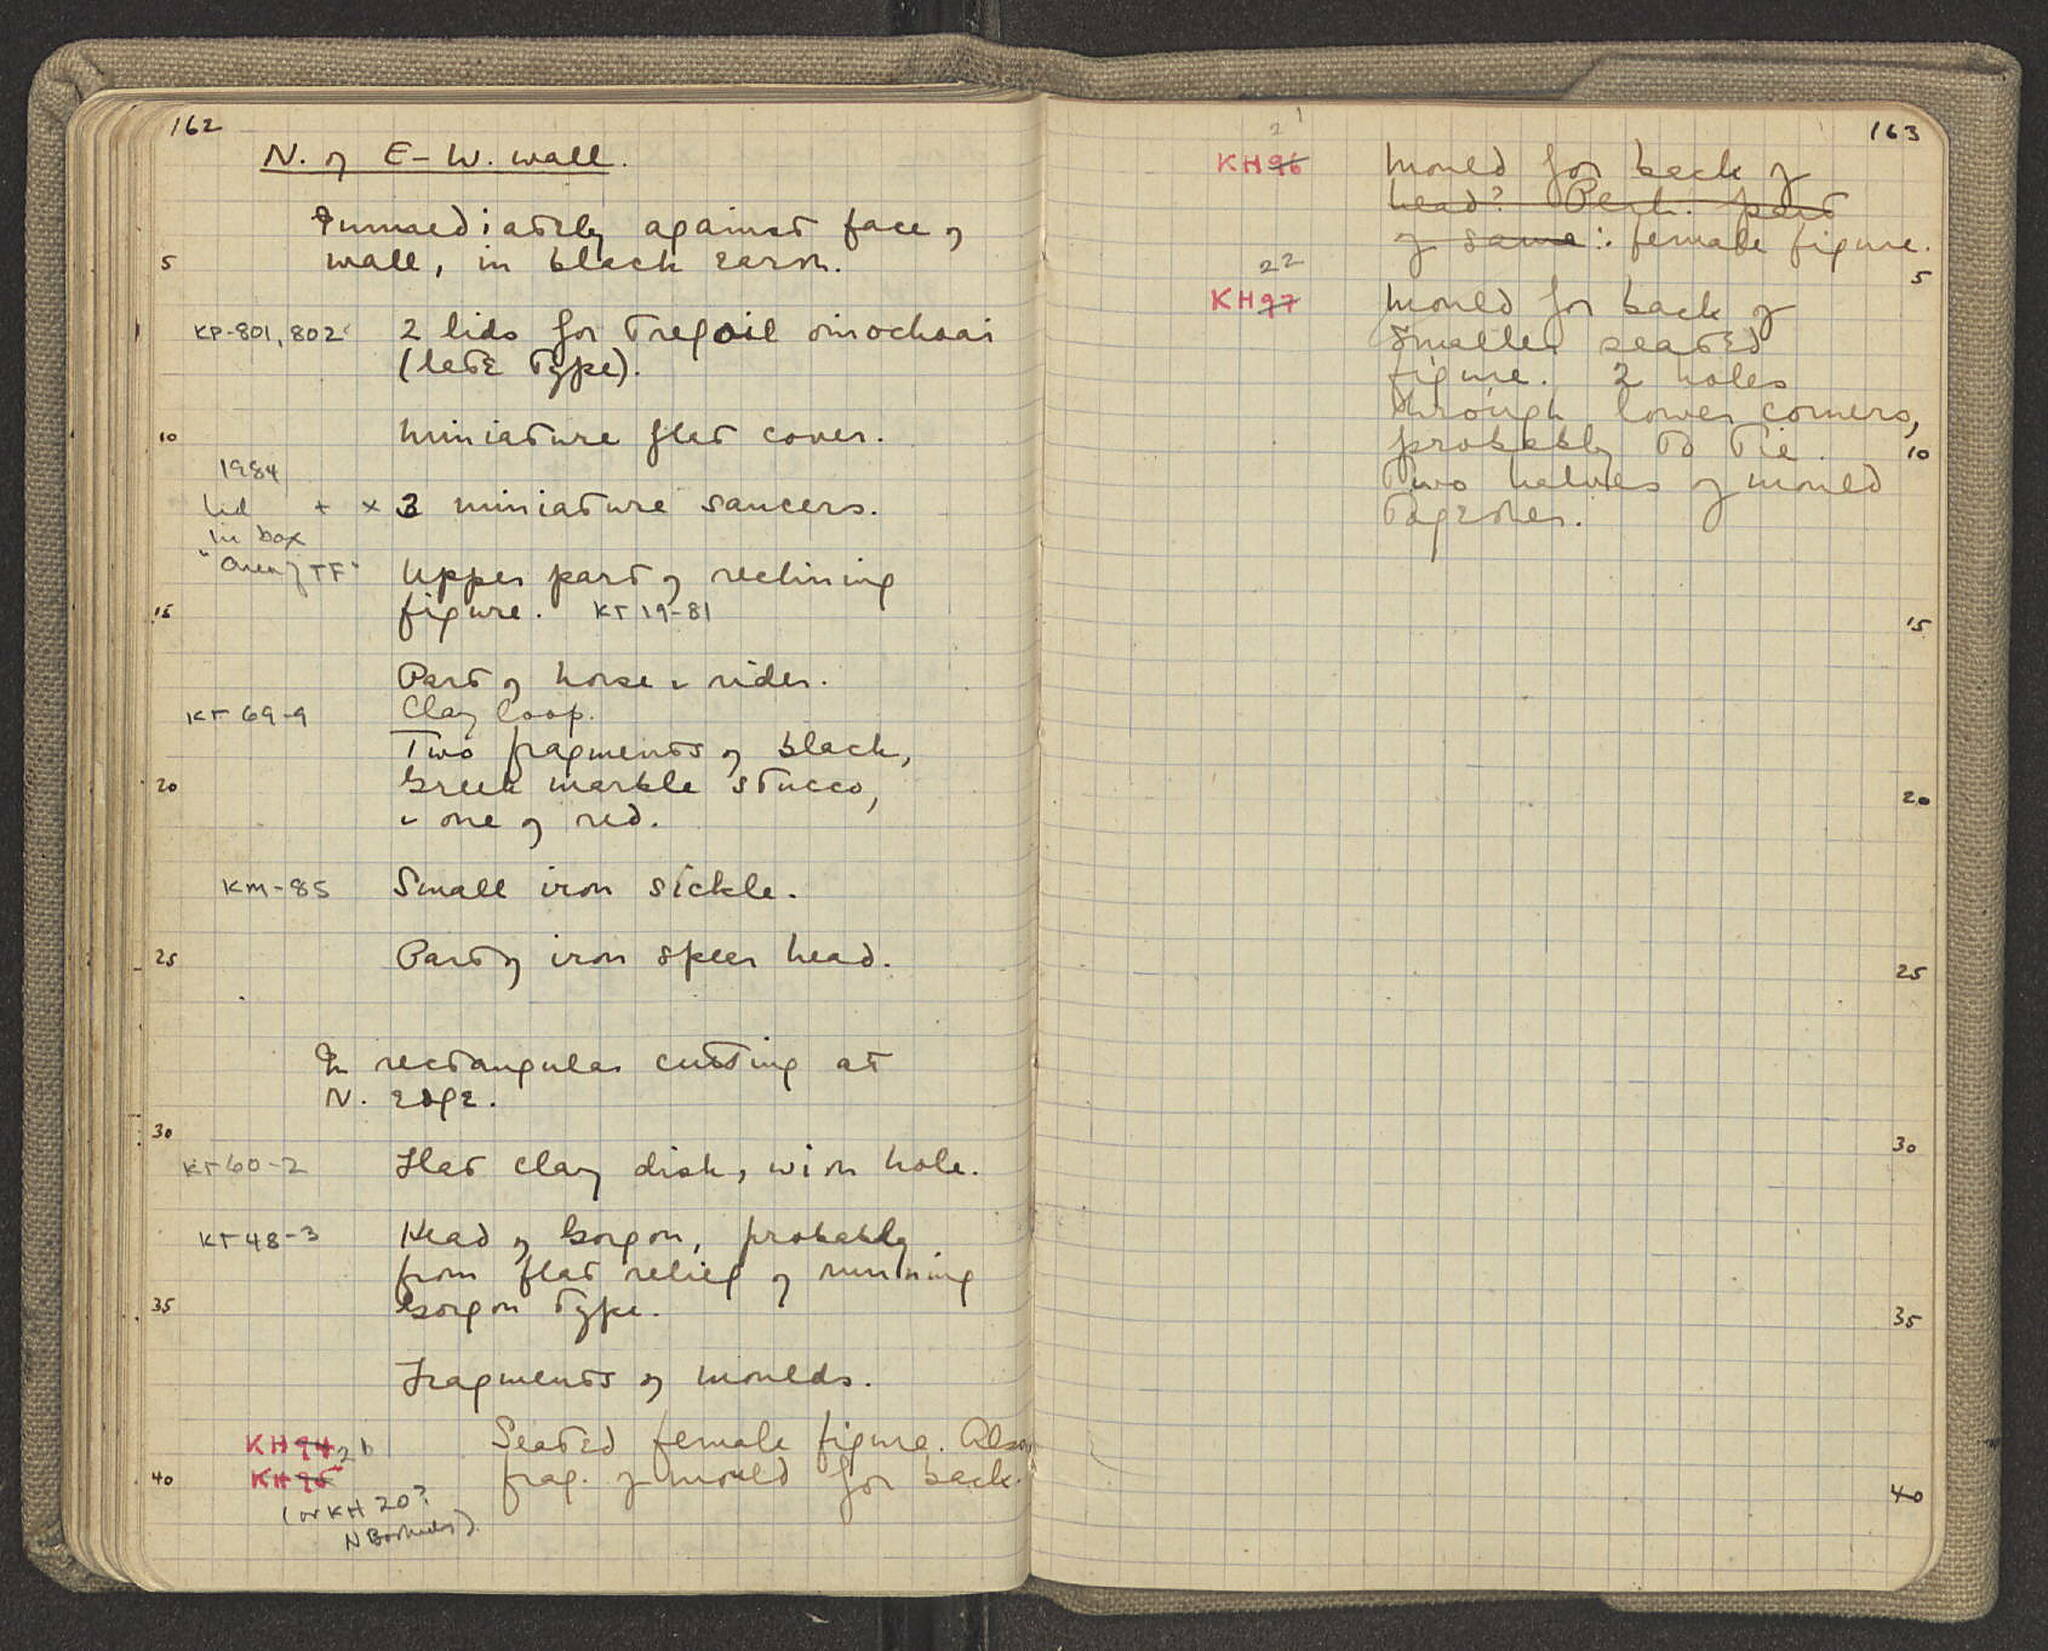 162
N. of E-W. wall.
Immediately against face of
5 wall, in black earth.
KP-801, 802 2 lids for trefoil oinochoai
(late type).
10 Miniature flat cover.
1984
lid + x 3 miniature saucers.
in box
"Area of TF" Upper part of reclining
15 figure. KT 19-81
Part of horse & rider.
KT 69-9 Clay loop.
Two fragments of black,
20 Greek marble stucco,
& one of red.
KM-85 Small iron sickle.
25 Part of iron spear head.
In rectangular cutting at
N. edge.
30
KT 60-2 Flat clay disk, with hole.
KT 48-3 Head of Gorgon, probably
from flat relief of running
35 Gorgon type.
Fragments of moulds.
KH 94 Seated female figure. Also
40 KH 95 frag. of mould for back.
(or KH 20?
N Bookidis)
163
21
KH 96 Mould for back of
head? Perh. part
of same: female figure.
22
5
KH 97 Mould for back of
smaller seated
figure. 2 holes
through lower corners,
probably to tie 10
two halves of mould
together.
15
20
25
30
35
40